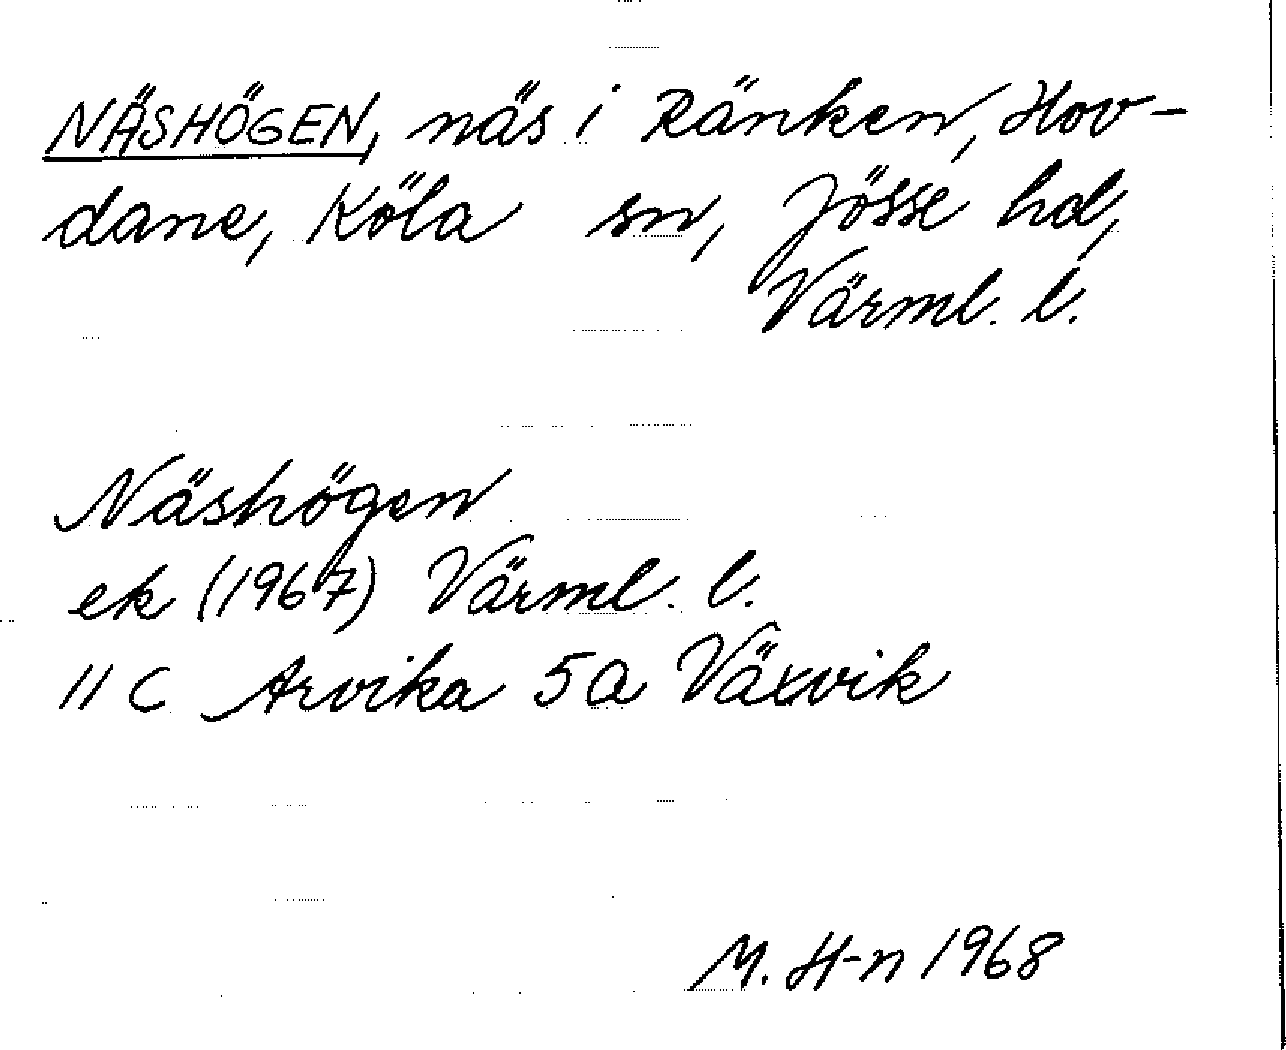 NÄSHÖGEN, näs i Ränken, Hov-
dane, Köla sn, Jösse hd,
Värml. l.
Näshögen
ek (1967) Värml. l.
11 C Arvika 5a Växvik
M. H-n 1968